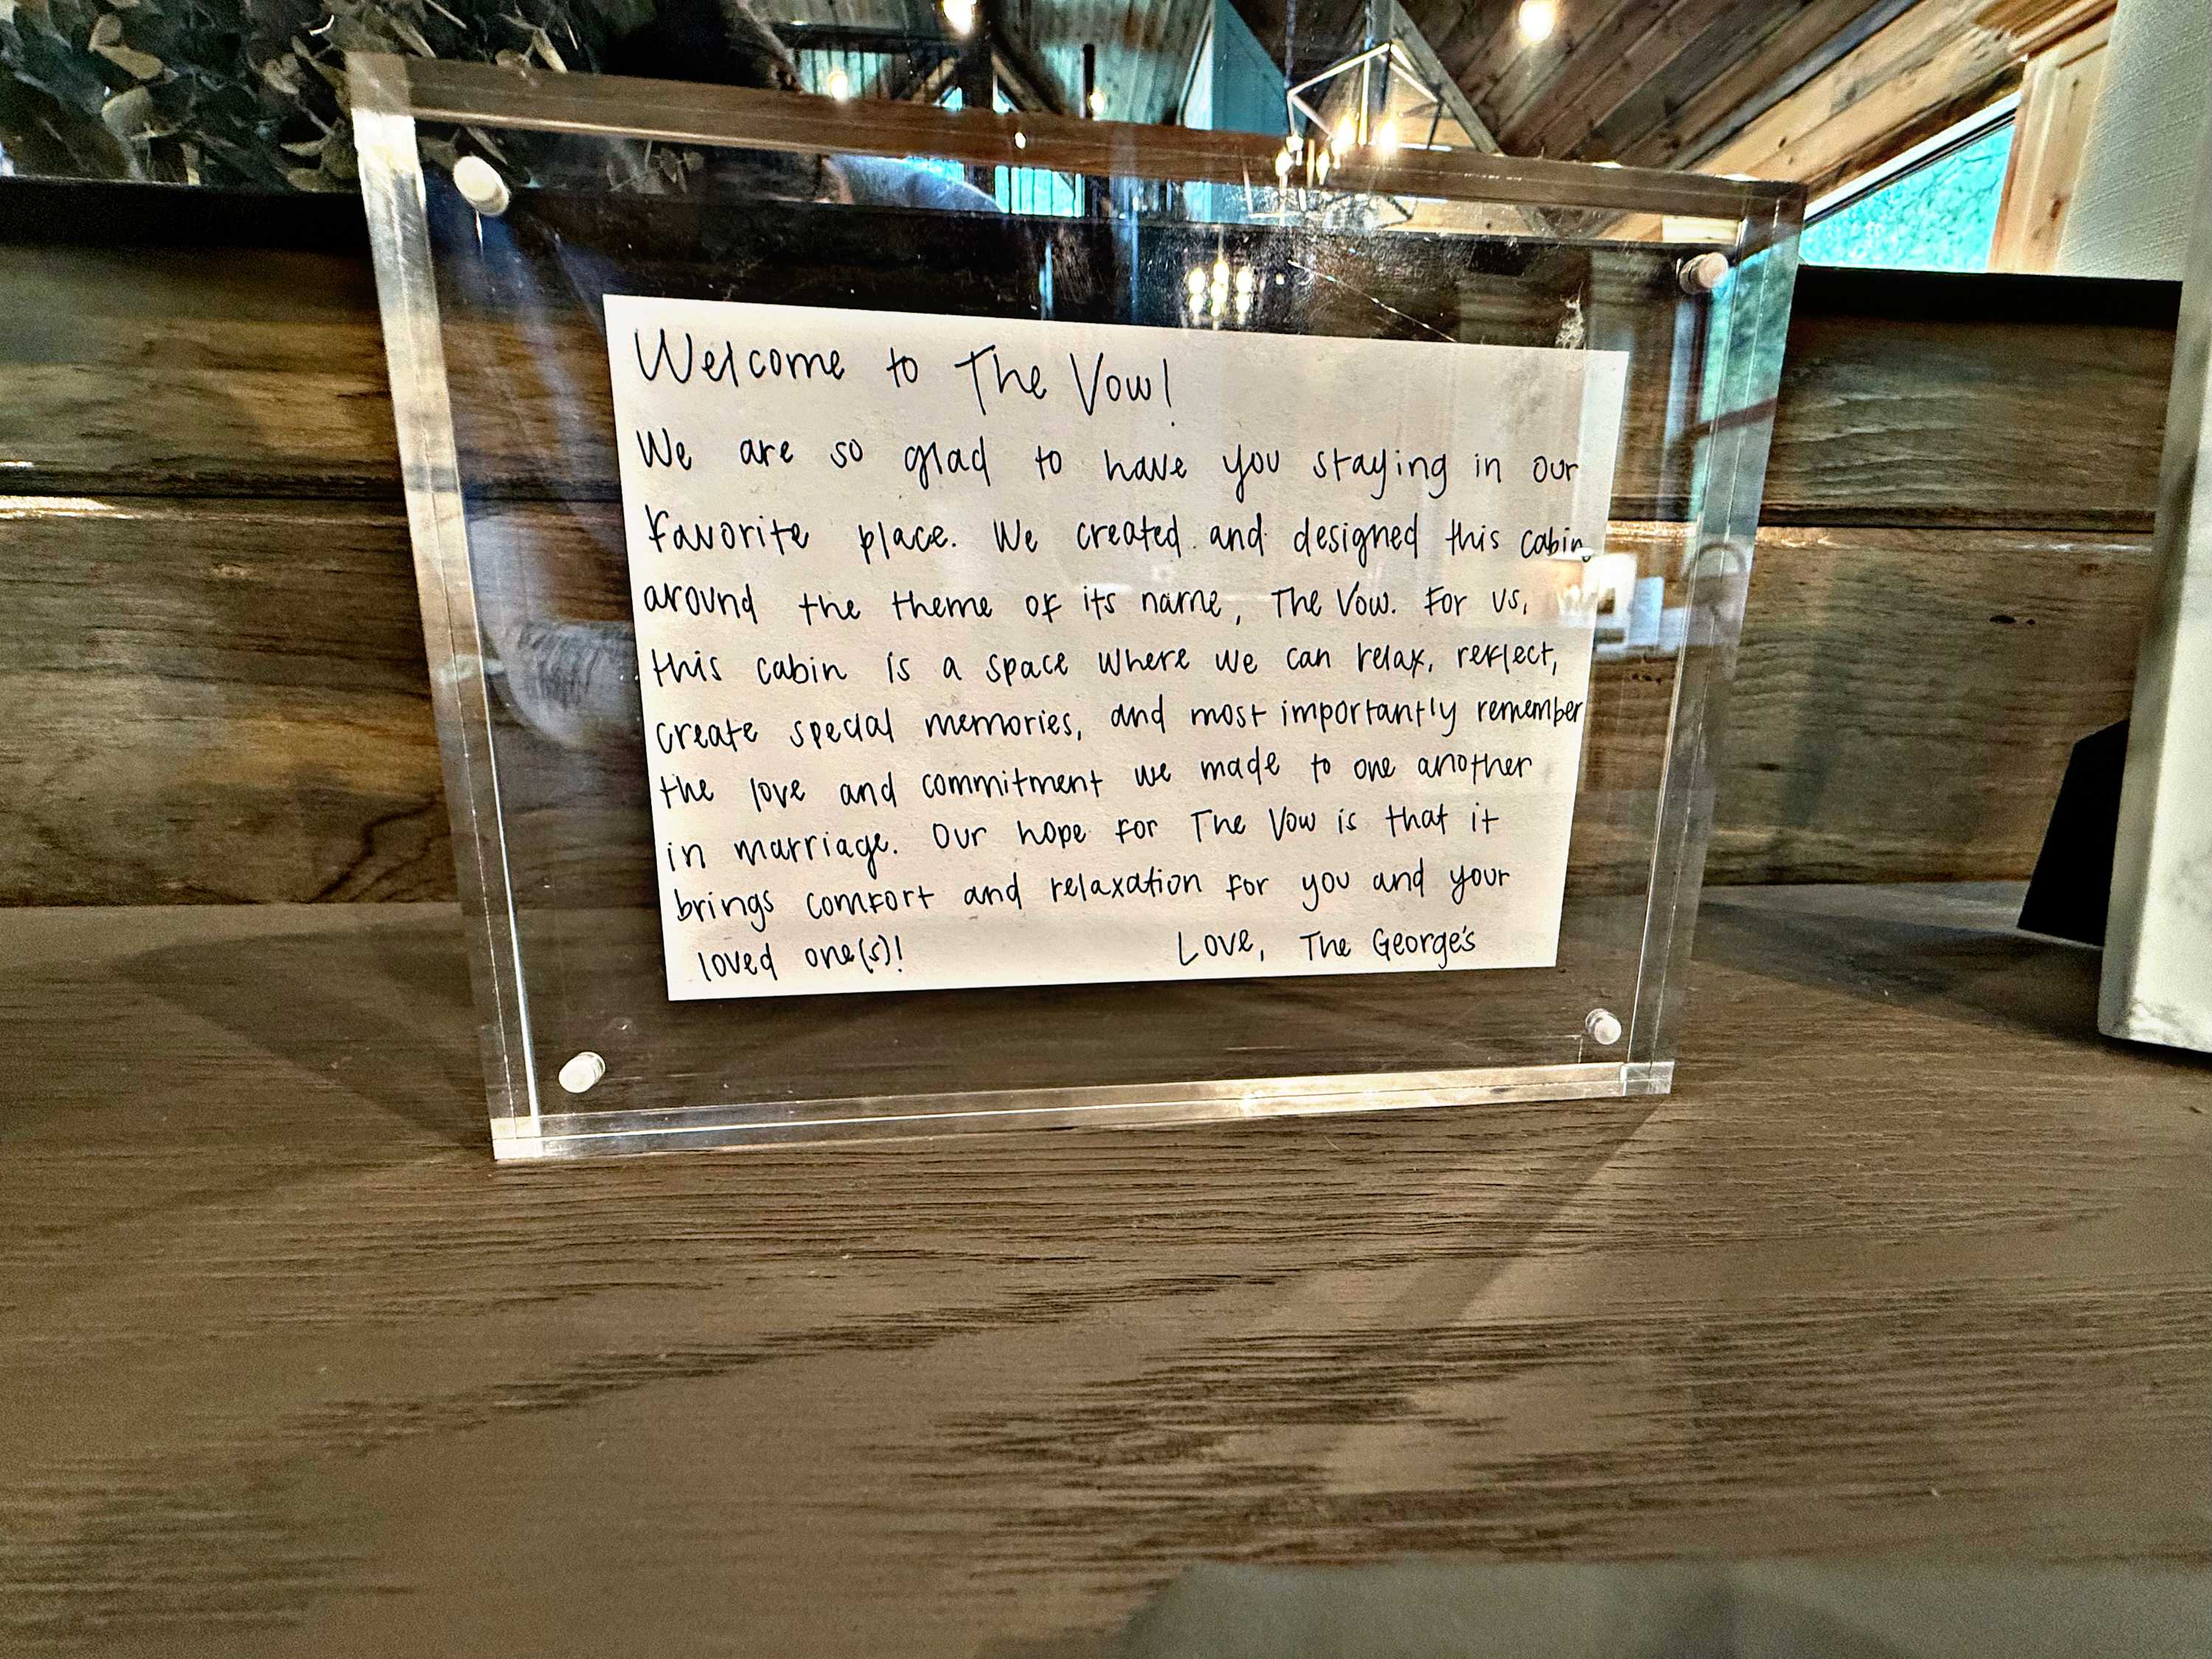 Welcome to The Vow!
We are so glad to have you staying in our
favorite place. We created and designed this cabin
around the theme of its name, The Vow. For us,
this cabin is a space where we can relax, reflect,
create special memories, and most importantly remember
the love and commitment we made to one another
in marriage. Our hope for The Vow is that it
brings comfort and relaxation for you and your
loved one(s)! Love, The George's